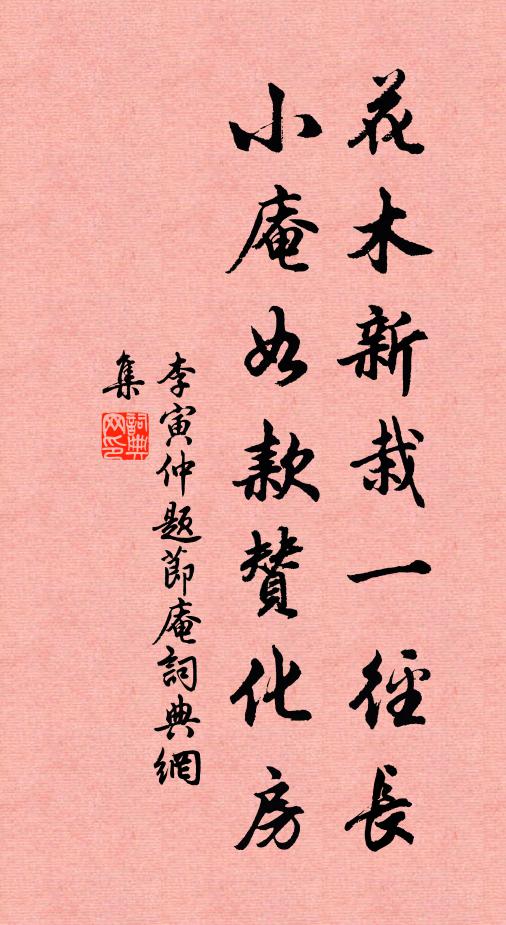 花木新栽一径長
小庵如款贊化房
李寅仲題節庵詞典網
集
詞典
网印